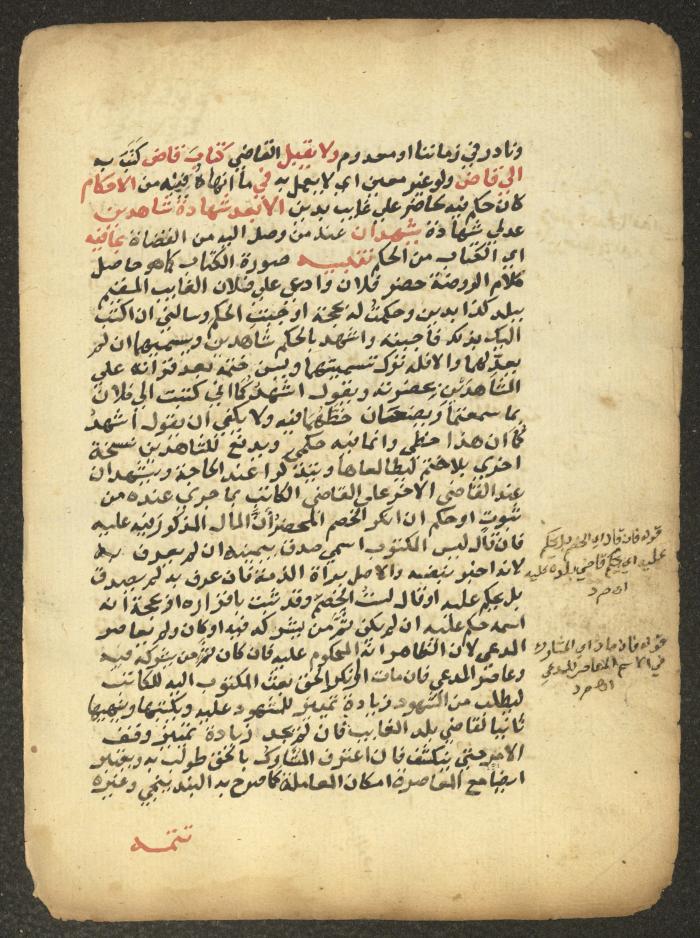 ونادر في زماننا او معدوم ولا يقبل القاضي كتاب قاض كتب به
الي قاض ولو غير معين اي لا يعمل به في ما انهاه فيه من الاحكام
كان حكم فيه لحاضر علي غايب بدين الا بعد شهادة شاهدين
عدلي شهادة يشهدان عند من وصل اليه من القضاة بما فيه
اي الكتاب من الحكم تنبيه صورة الكتاب كما هو حاصل
كلام الروضة حضر فلان وادعي علي فلان الغايب المقيم
ببلد كذا بدين وحكمت له بحجة اوجبت الحكم وسالني ان اكتب
اليك بذلك فاجبته واشهد بالحكم شاهدين ويسميهما ان لم
يعدلهما والا فله ترك تسميتهما ويسن ختمه بعد قراته علي
الشاهدين بحضرته ويقول اشهدكما اني كتبت الي فلان
بما سمعتما ويضعان خطهما فيه ولا يكفي ان يقول اشهد
كما ان هذا خطي وان ما فيه حكمي ويدفع للشاهدين نسخة
اخري بلا ختم ليطالعاها ويتذكرا عند الحاجة ويشهدان
عند القاضي الاخر علي القاضي الكاتب بما جري عنده من
ثبوت او حكم ان انكر الخصم المحضر ان المال المذكور فيه عليه
فان قال ليس المكتوب اسمي صدق بيمينه ان لم يعرف به
لانه اخبر بنفسه والاصل براة الذمة فان عرف به لم يصدق
بل يحكم عليه او قال لست الخصم وقد ثبت باقراره او بحجة انه
اسمه حكم عليه ان لم يكن ثم من يشركه فيه او كان ولم يعاصر
المدعي لان الظاهر انه المحكوم عليه فان كان ثم من يشركه فيه
وعاصر المدعي فان مات او انكر الحق بعث المكتوب اليه للكاتب
ليطلب من الشهود زيادة تمييز للمشهود عليه ويكتبها وينهيها
ثانيا لقاضي بلد الغايب فان لم يجد زيادة تمييز وقف
الامر حتي ينكشف فان اعترف المشارك بالحق طولب به ويعتبر
ايضا مع المعاصرة امكان المعاملة كما صرح به البندنيجي وغيره
تتمه
قوله فان مات اي المشارك
في الاسم المعاصر للمدعي